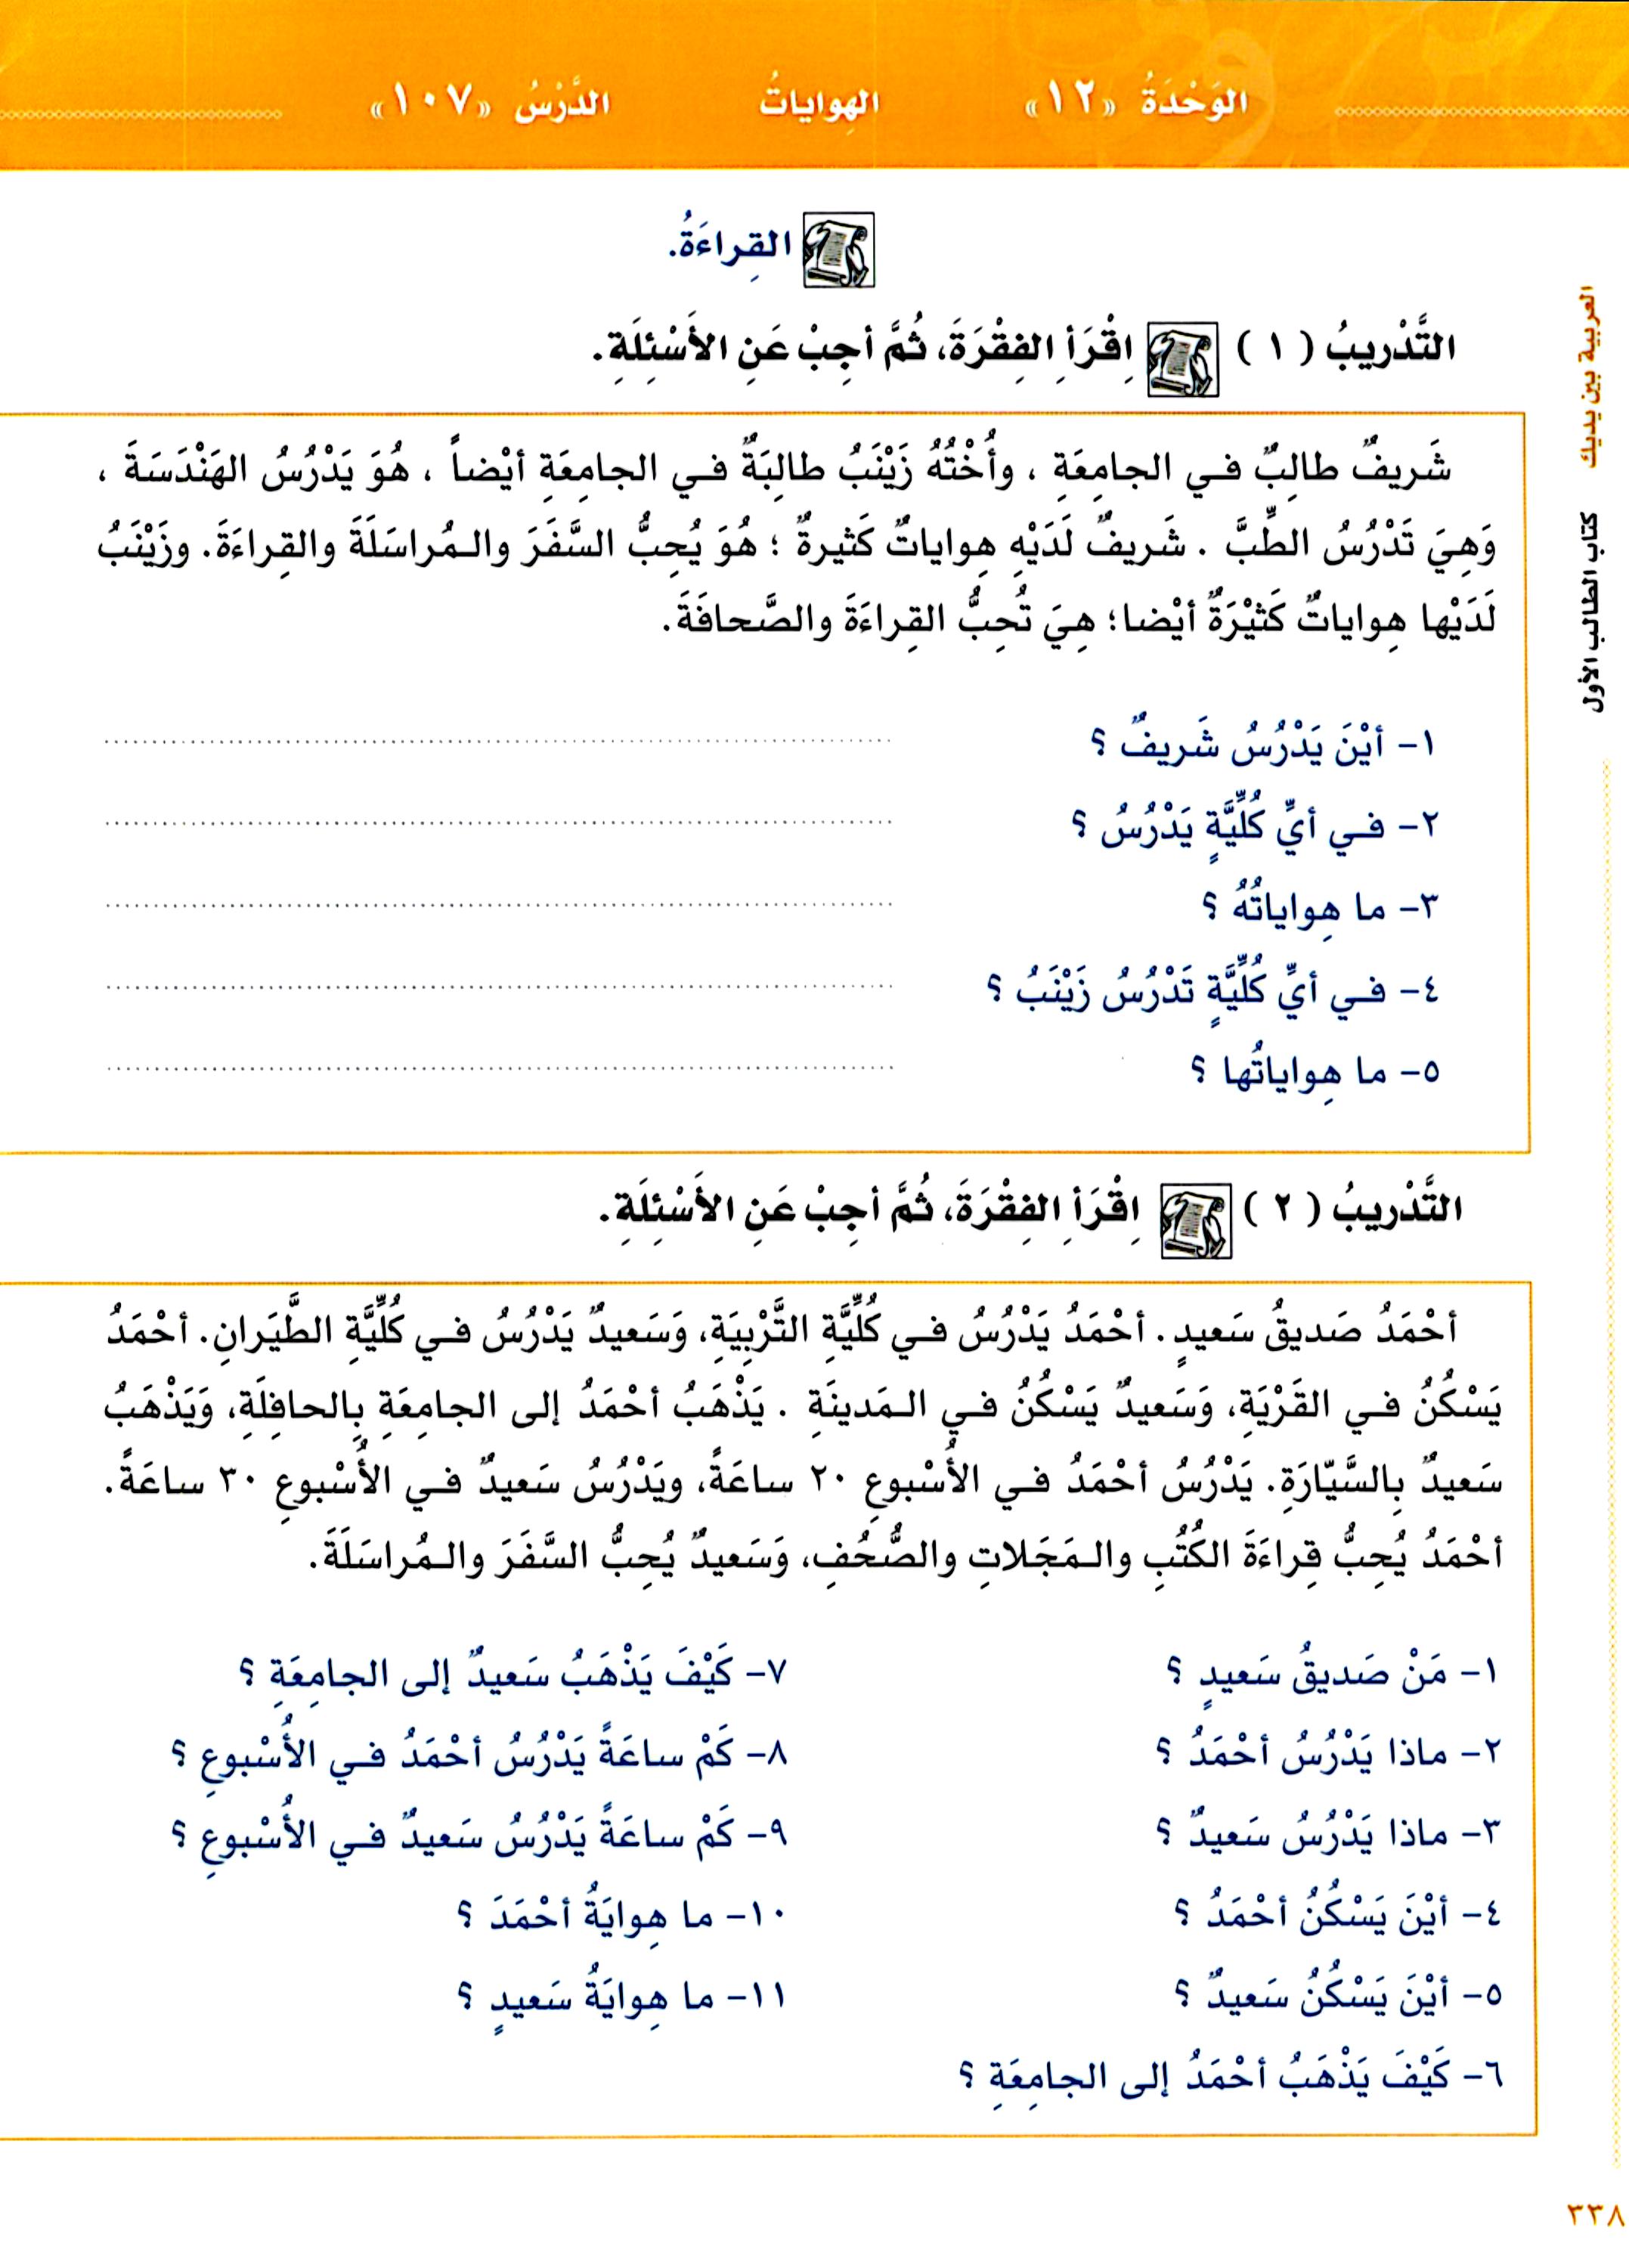 الوَحْدَةُ «١٢» الهِواياتُ الدَّرْسُ «١٠٧»
القِراءَةُ.
التَّدْريبُ (١) اِقْرَأِ الفِقْرَةَ، ثُمَّ أجِبْ عَنِ الأَسْئِلَةِ.
شَريفٌ طالِبٌ في الجامِعَةِ ، وأُخْتُهُ زَيْنَبُ طالِبَةٌ في الجامِعَةِ أيْضاً ، هُوَ يَدْرُسُ الهَنْدَسَةَ ،
وَهِيَ تَدْرُسُ الطِّبَّ . شَريفٌ لَدَيْهِ هِواياتٌ كَثيرةٌ ؛ هُوَ يُحِبُّ السَّفَرَ والـمُراسَلَةَ والقِراءَةَ. وزَيْنَبُ
لَدَيْها هِواياتٌ كَثيْرَةٌ أيْضا؛ هِيَ تُحِبُّ القِراءَةَ والصَّحافَةَ.
١- أيْنَ يَدْرُسُ شَريفٌ ؟
٢- في أيِّ كُلِّيَّةٍ يَدْرُسُ ؟
٣- ما هِواياتُهُ ؟
٤- في أيِّ كُلِّيَّةٍ تَدْرُسُ زَيْنَبُ ؟
٥- ما هِواياتُها ؟
التَّدْريبُ (٢) اِقْرَأِ الفِقْرَةَ، ثُمَّ أجِبْ عَنِ الأَسْئِلَةِ.
أحْمَدُ صَديقُ سَعيدٍ. أحْمَدُ يَدْرُسُ في كُلِّيَّةِ التَّرْبِيَةِ، وَسَعيدٌ يَدْرُسُ في كُلِّيَّةِ الطَّيَرانِ. أحْمَدُ
يَسْكُنُ في القَرْيَةِ، وَسَعيدٌ يَسْكُنُ في الـمَدينَةِ . يَذْهَبُ أحْمَدُ إلى الجامِعَةِ بِالحافِلَةِ، وَيَذْهَبُ
سَعيدٌ بِالسَّيّارَةِ. يَدْرُسُ أحْمَدُ في الأُسْبوعِ ٢٠ ساعَةً، ويَدْرُسُ سَعيدٌ في الأُسْبوعِ ٣٠ ساعَةً.
أحْمَدُ يُحِبُّ قِراءَةَ الكُتُبِ والـمَجَلاتِ والصُّحُفِ، وَسَعيدٌ يُحِبُّ السَّفَرَ والـمُراسَلَةَ.
١- مَنْ صَديقُ سَعيدٍ ؟
٢- ماذا يَدْرُسُ أحْمَدُ ؟
٣- ماذا يَدْرُسُ سَعيدٌ ؟
٤- أيْنَ يَسْكُنُ أحْمَدُ ؟
٥- أيْنَ يَسْكُنُ سَعيدٌ ؟
٦- كَيْفَ يَذْهَبُ أحْمَدُ إلى الجامِعَةِ ؟
٧- كَيْفَ يَذْهَبُ سَعيدٌ إلى الجامِعَةِ ؟
٨- كَمْ ساعَةً يَدْرُسُ أحْمَدُ في الأُسْبوعِ ؟
٩- كَمْ ساعَةً يَدْرُسُ سَعيدٌ في الأُسْبوعِ ؟
١٠- ما هِوايَةُ أحْمَدَ ؟
١١- ما هِوايَةُ سَعيدٍ ؟
العربية بين يديك كتاب الطالب الأول
٣٣٨